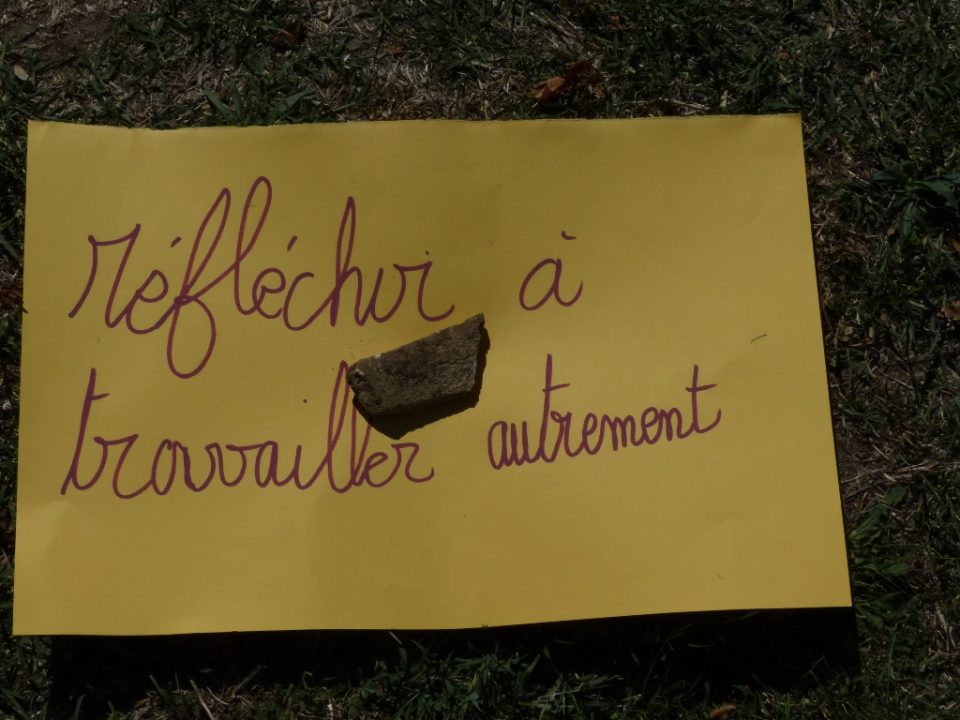 réfléchir à
travailler autrement